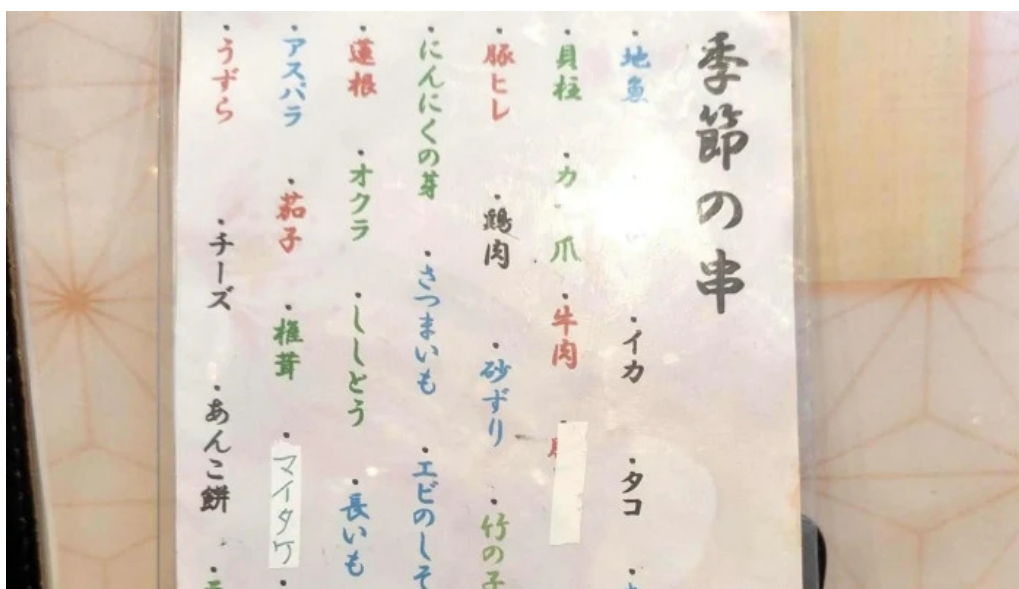 季節の串
・地魚 ・イカ ・タコ ・
・貝柱 ・カ 爪 ・牛肉 ・
・豚ヒレ ・鶏肉 ・砂ずり ・竹の子
・にんにくの芽 ・さつまいも ・エビのしそ
・蓮根 ・オクラ ・ししとう ・長いも
・アスパラ ・茄子 ・椎茸 ・マイタケ ・
・うずら ・チーズ ・あんこ餅 ・